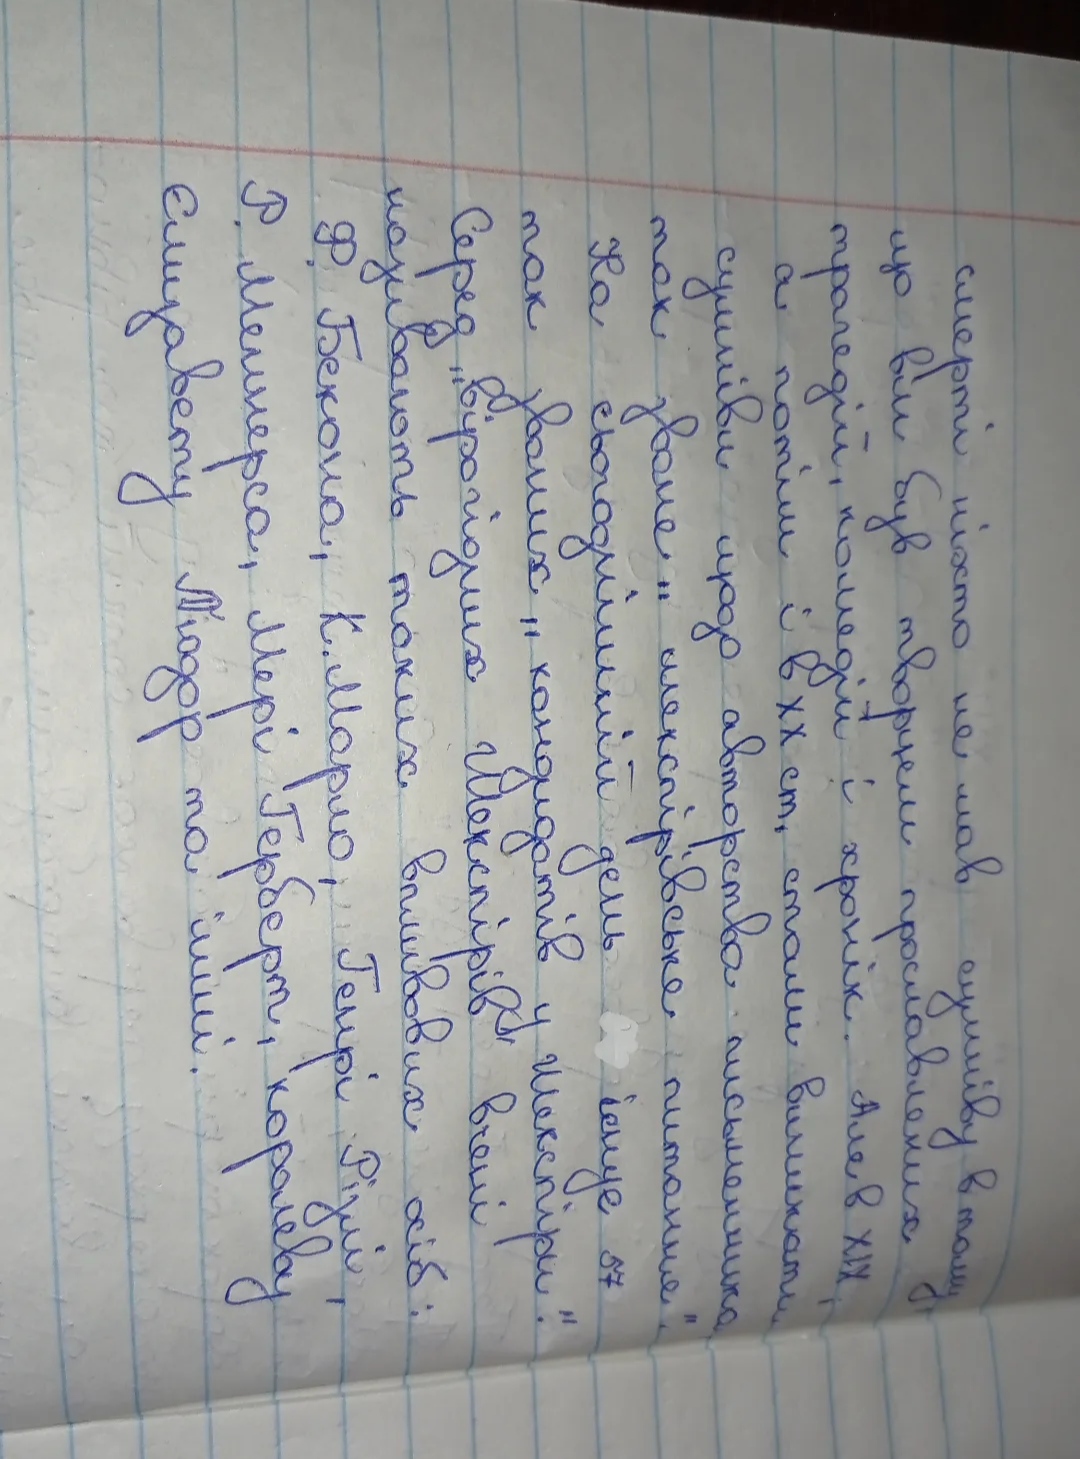 смерті ніхто не мав сумніву в тому,
що він був творцем прославлених
трагедій, комедій і хронік. Але в XIX,
а потім і в XX ст, стали виникати
сумніви щодо авторства письменника,
так зване „шекспірівське питання".
На сьогоднішній день існує 57
так званих „кондидатів у Шекспіри".
Серед „вірогідних Шекспірів" вчені
називають таких впливових осіб:
Ф. Бекона, К. Марло, Генрі Різлі,
Р. Меннерса, Мері Герберт, королеву
Єлизавету Тюдор та інші.